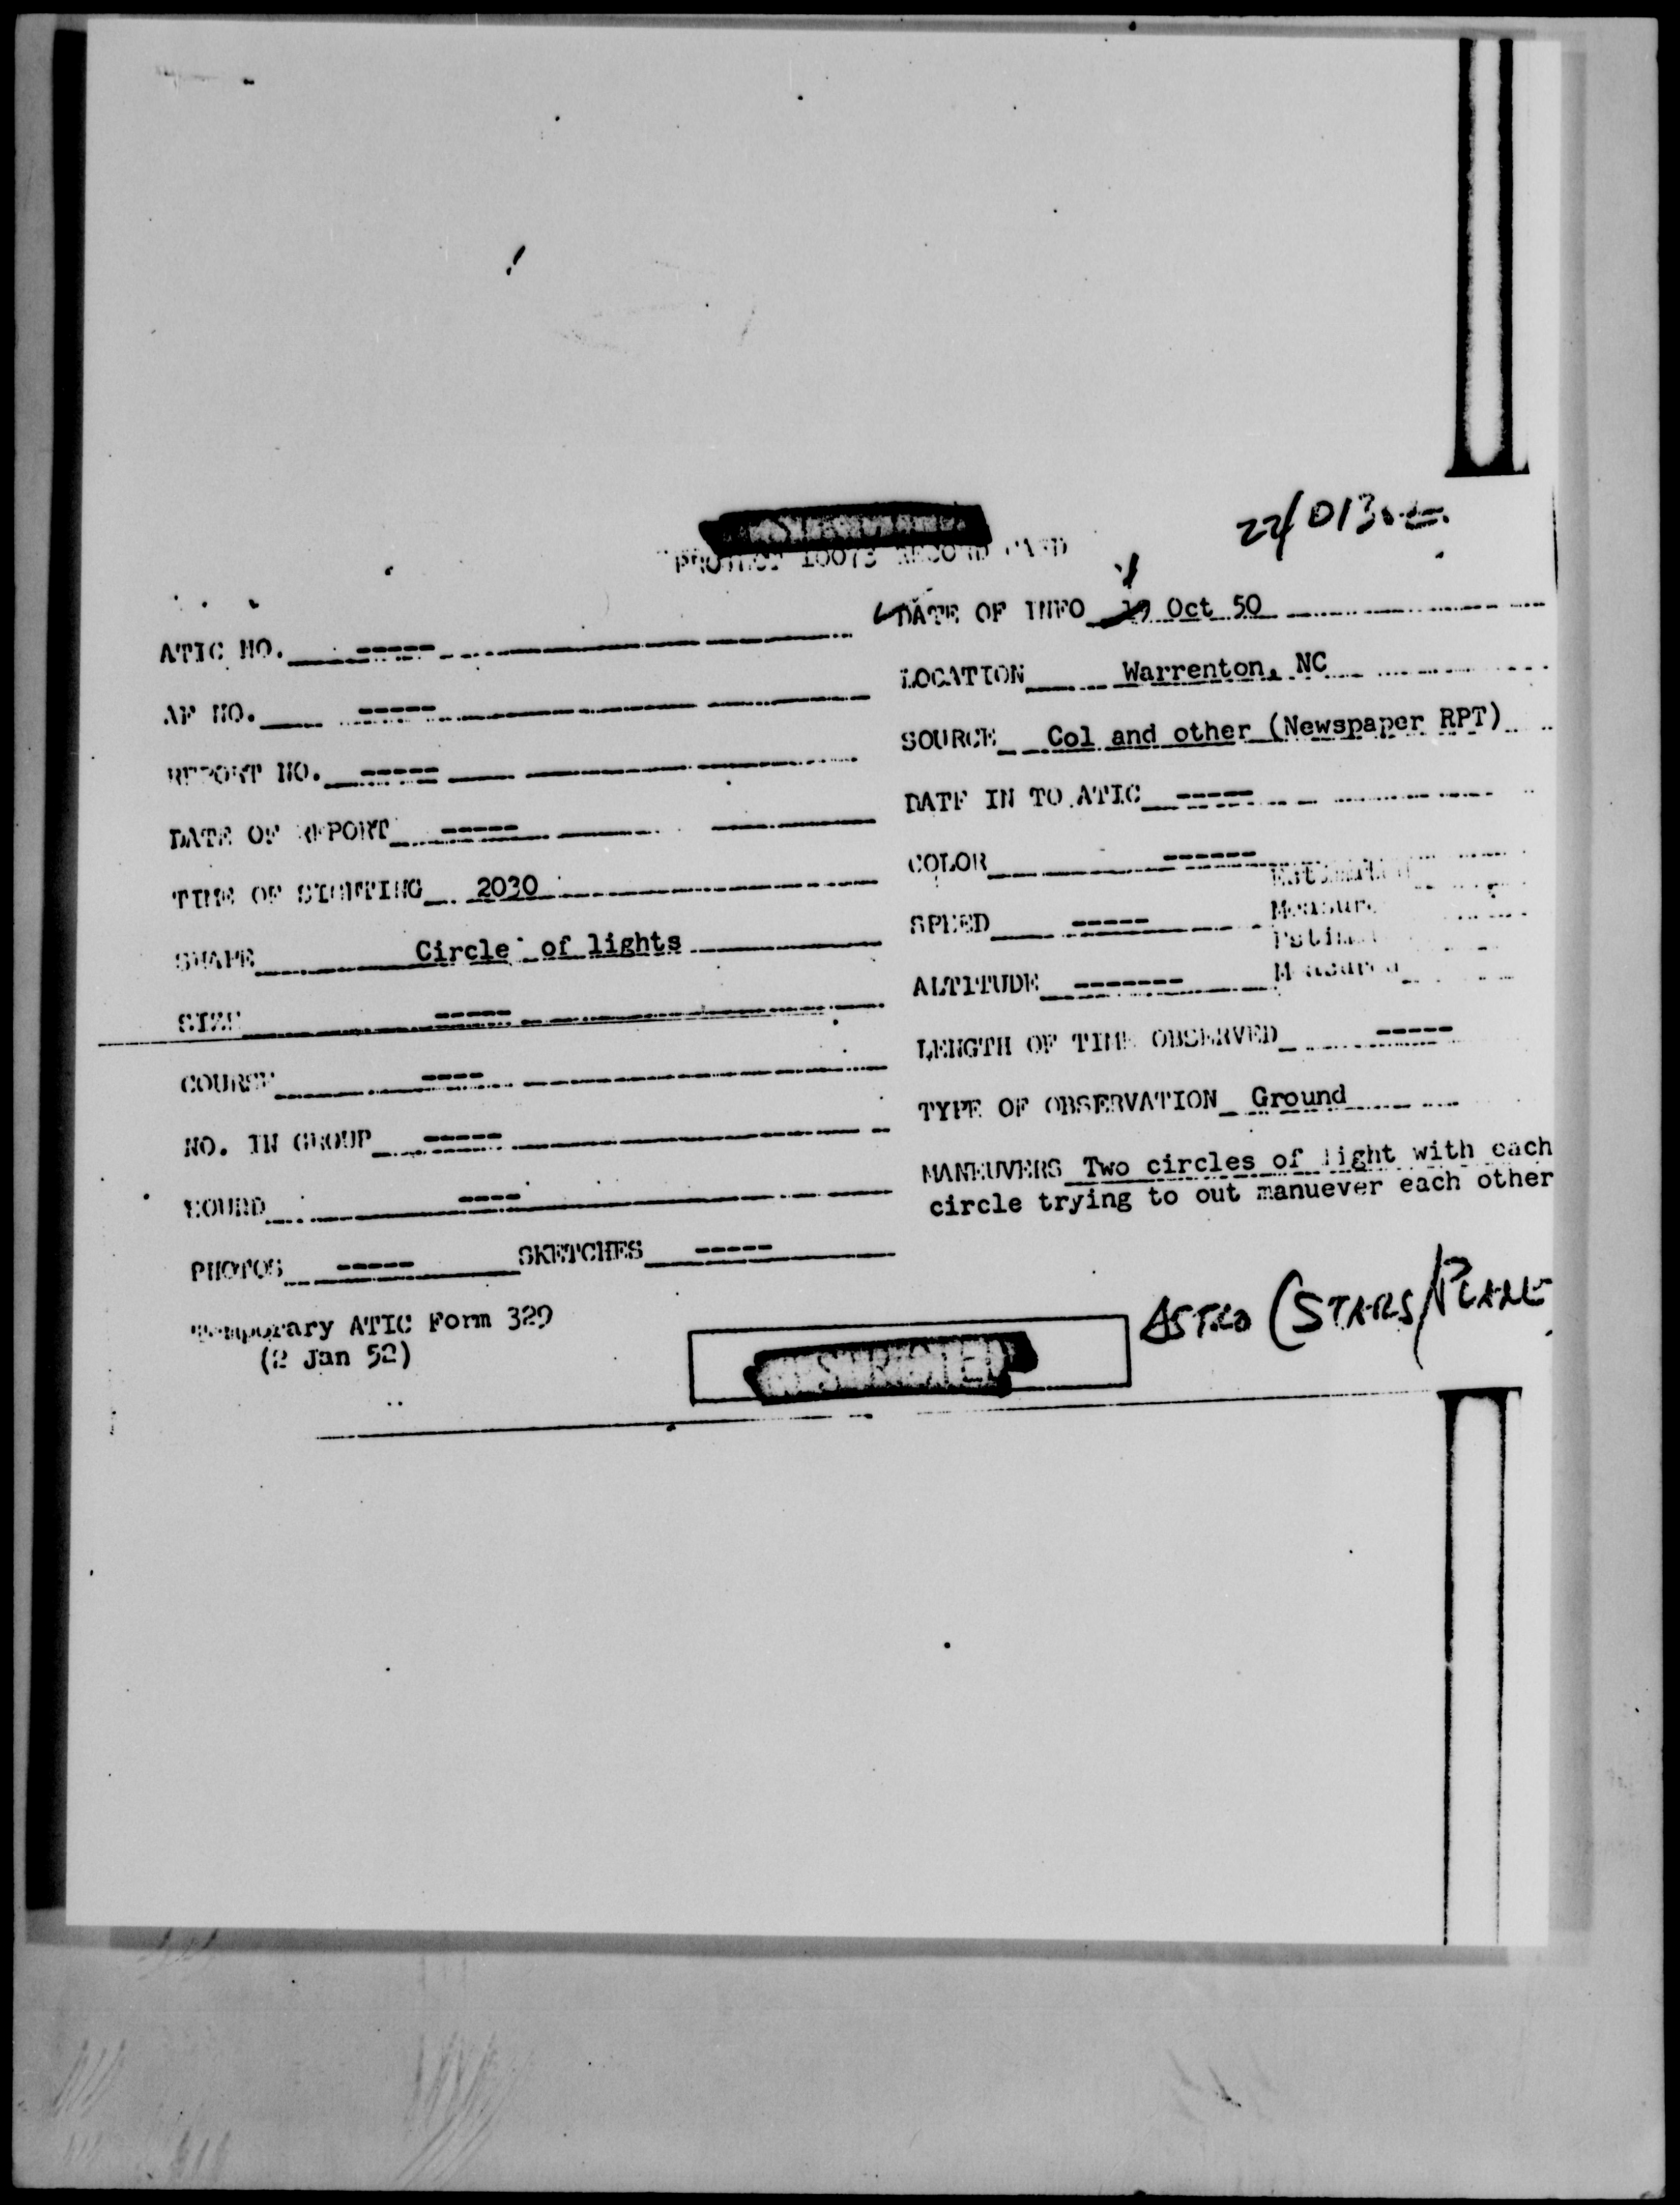 22/0130Z
PROJECT 10073 RECORD CARD
ATIC NO. -----
AF NO. -----
REPORT NO. -----
DATE OF REPORT -----
TIME OF SIGHTING 2030
SHAPE Circle of lights
SIZE -----
COURSE ----
NO. IN GROUP -----
SOUND ----
PHOTOS ----- SKETCHES -----
Temporary ATIC Form 329
(2 Jan 52)
DATE OF INFO Oct 50
LOCATION Warrenton, NC
SOURCE Col and other (Newspaper RPT)
DATE IN TO ATIC -----
COLOR ------
SPEED ----- Estimated
Measured
ALTITUDE ------- Estimated
Measured
LENGTH OF TIME OBSERVED -----
TYPE OF OBSERVATION Ground
MANEUVERS Two circles of light with each
circle trying to out manuever each other
ASTRO (STARS/PLANE